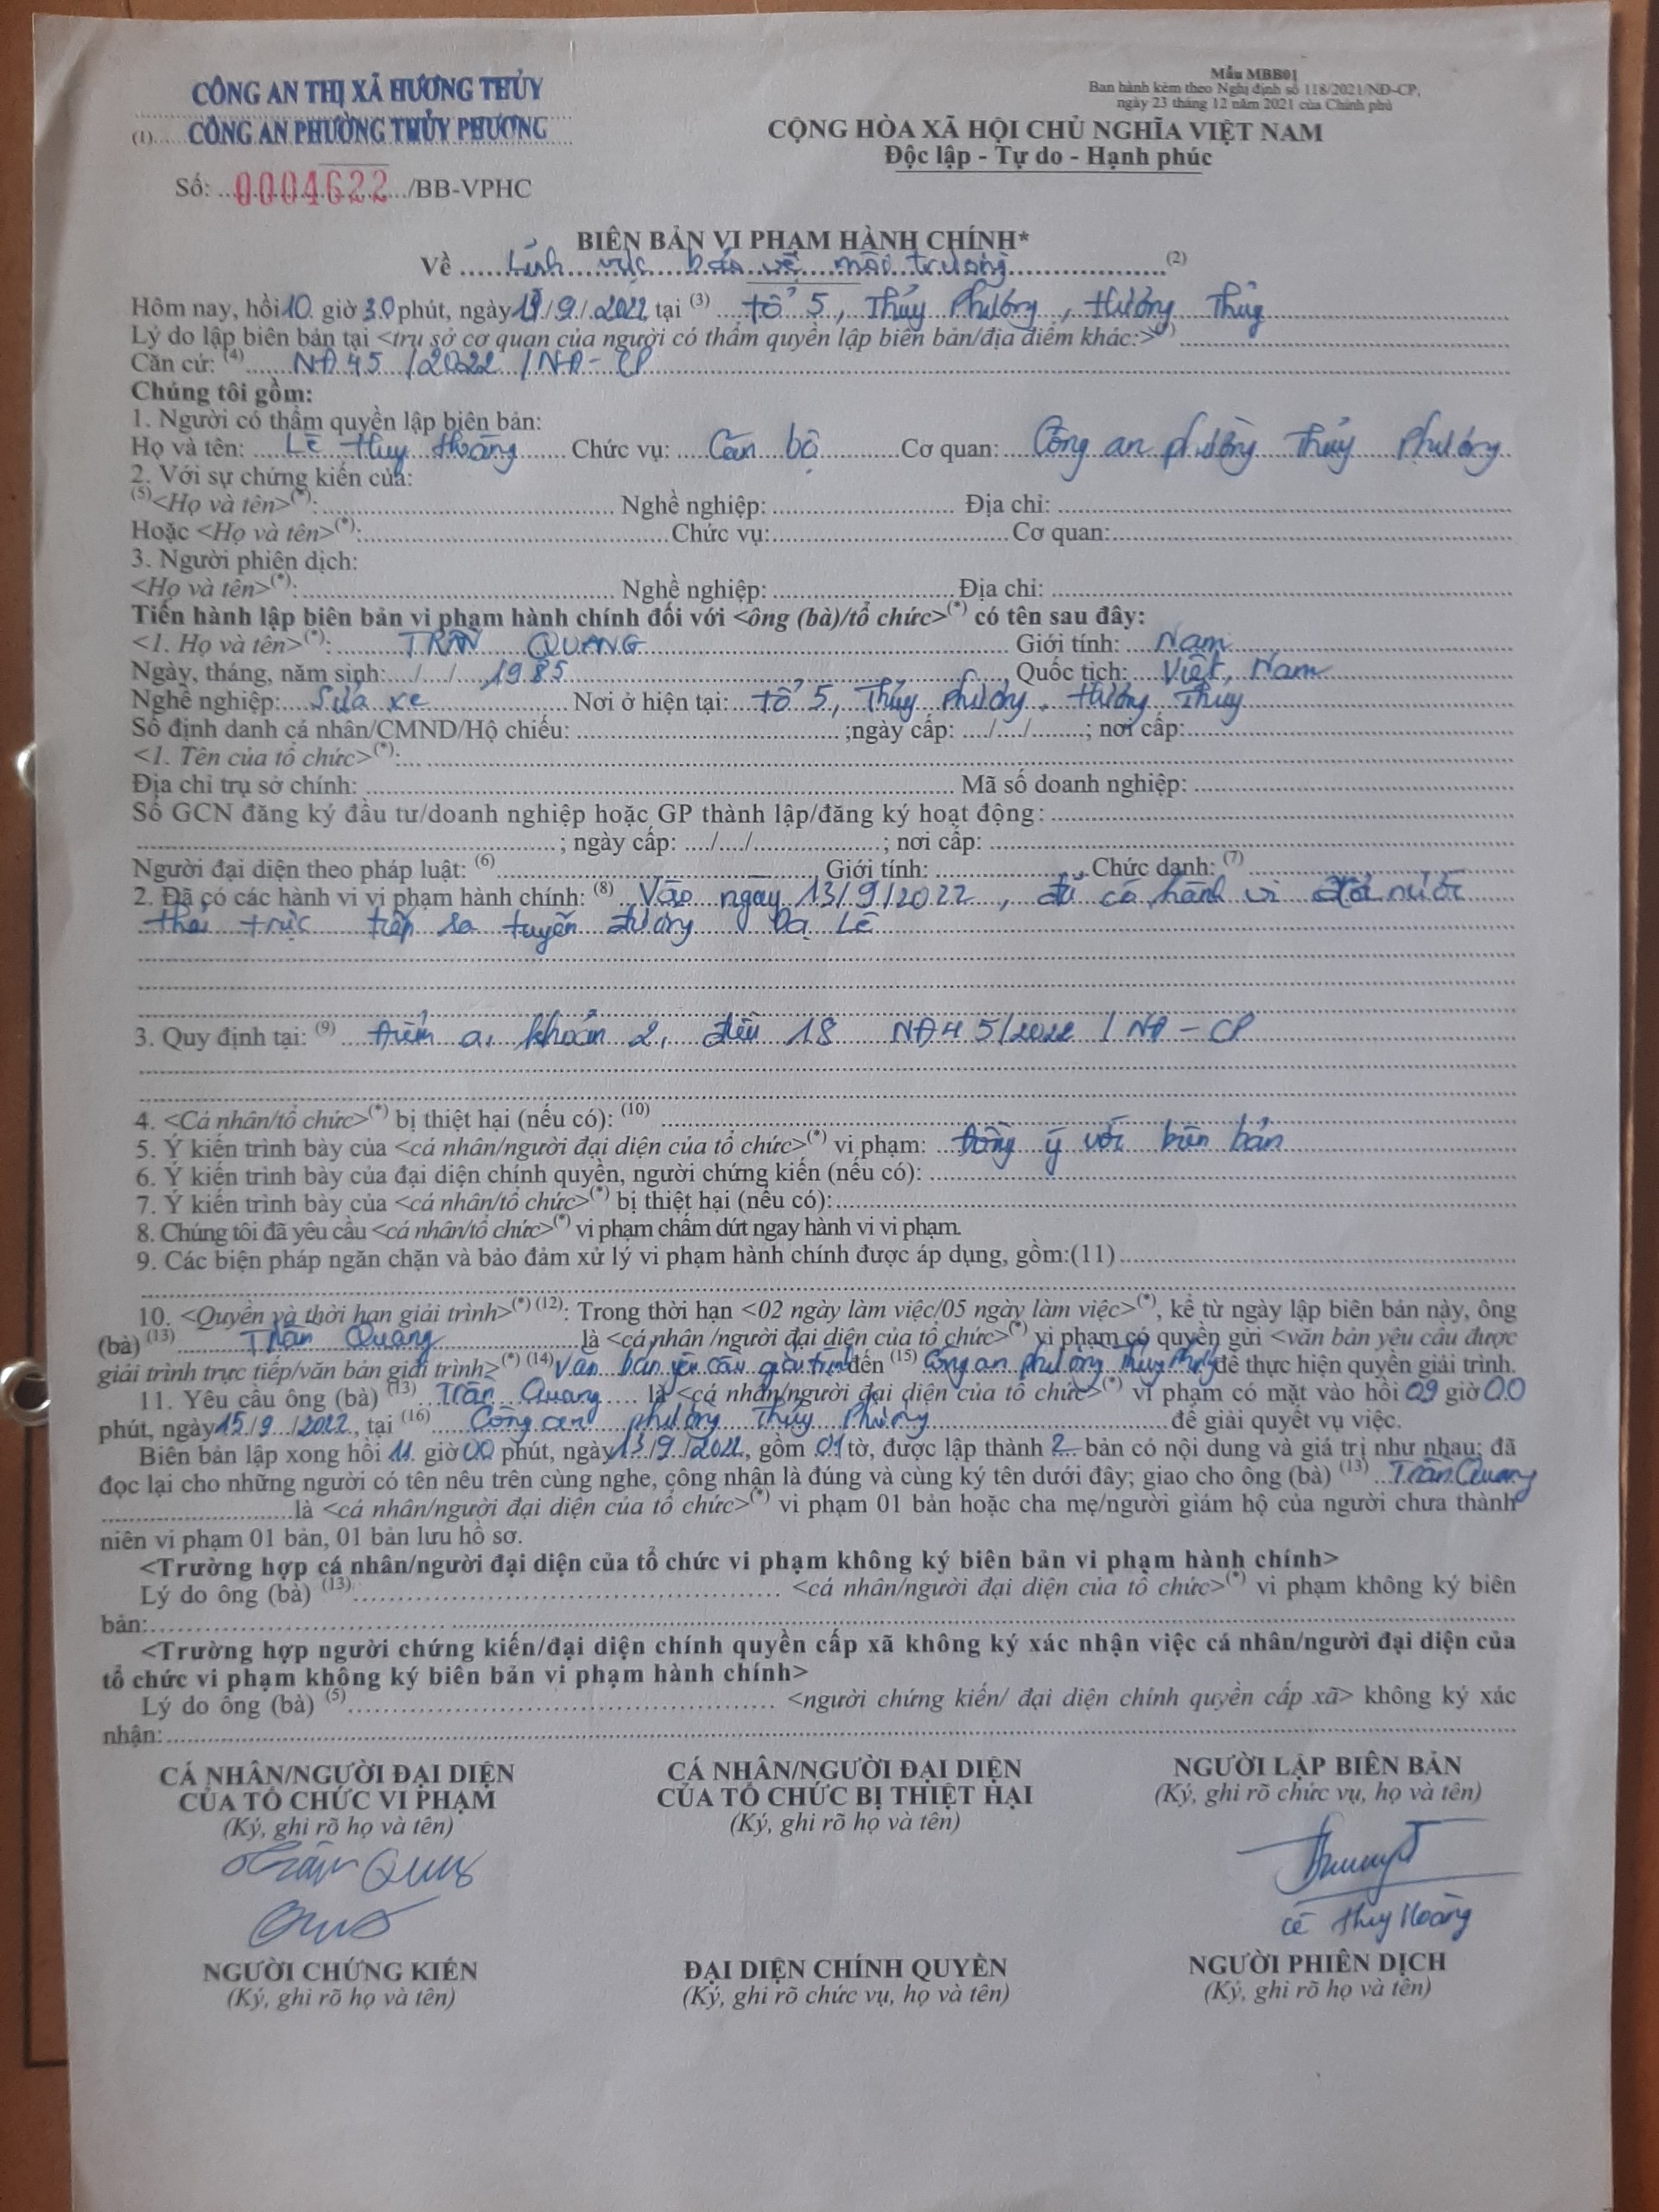 CÔNG AN THỊ XÃ HƯƠNG THỦY
(1).... CÔNG AN PHƯỜNG THỦY PHƯƠNG
Số: 0004622 /BB-VPHC
Mẫu MBB01
Ban hành kèm theo Nghị định số 118/2021/NĐ-CP,
ngày 23 tháng 12 năm 2021 của Chính phủ
CỘNG HÒA XÃ HỘI CHỦ NGHĨA VIỆT NAM
Độc lập - Tự do - Hạnh phúc
BIÊN BẢN VI PHẠM HÀNH CHÍNH*
Về Lĩnh vực bảo vệ môi trường (2)
Hôm nay, hồi 10 giờ 30 phút, ngày /9/2022 tại (3) tổ 5, Thủy Phương, Hương Thủy
Lý do lập biên bản tại <trụ sở cơ quan của người có thẩm quyền lập biên bản/địa điểm khác:>(*)
Căn cứ: (4) NĐ 45 /2022 /NĐ-CP
Chúng tôi gồm:
1. Người có thẩm quyền lập biên bản:
Họ và tên: Lê Huy Hoàng Chức vụ: Cán bộ Cơ quan: Công an phường Thủy Phương
2. Với sự chứng kiến của:
(5)<Họ và tên>(*): Nghề nghiệp: Địa chỉ:
Hoặc <Họ và tên>(*): Chức vụ: Cơ quan:
3. Người phiên dịch:
<Họ và tên>(*): Nghề nghiệp: Địa chỉ:
Tiến hành lập biên bản vi phạm hành chính đối với <ông (bà)/tổ chức>(*) có tên sau đây:
<1. Họ và tên>(*): TRẦN QUANG Giới tính: Nam
Ngày, tháng, năm sinh: / / 1985 Quốc tịch: Việt Nam
Nghề nghiệp: Sửa xe Nơi ở hiện tại: tổ 5, Thủy Phương, Hương Thủy
Số định danh cá nhân/CMND/Hộ chiếu: ;ngày cấp: ..../..../........; nơi cấp:
<1. Tên của tổ chức>(*):
Địa chỉ trụ sở chính: Mã số doanh nghiệp:
Số GCN đăng ký đầu tư/doanh nghiệp hoặc GP thành lập/đăng ký hoạt động:
; ngày cấp: ..../..../..........; nơi cấp:
Người đại diện theo pháp luật: (6) Giới tính: Chức danh: (7)
2. Đã có các hành vi vi phạm hành chính: (8) Vào ngày 13/9/2022, đã có hành vi đổ nước
thải trực tiếp ra tuyến đường Dạ Lê
3. Quy định tại: (9) điểm a, khoản 2, điều 18 NĐ 45/2022 / NĐ - CP
4. <Cá nhân/tổ chức>(*) bị thiệt hại (nếu có): (10)
5. Ý kiến trình bày của <cá nhân/người đại diện của tổ chức>(*) vi phạm: Đồng ý với biên bản
6. Ý kiến trình bày của đại diện chính quyền, người chứng kiến (nếu có):
7. Ý kiến trình bày của <cá nhân/tổ chức>(*) bị thiệt hại (nếu có):
8. Chúng tôi đã yêu cầu <cá nhân/tổ chức>(*) vi phạm chấm dứt ngay hành vi vi phạm.
9. Các biện pháp ngăn chặn và bảo đảm xử lý vi phạm hành chính được áp dụng, gồm:(11)
10. <Quyền và thời hạn giải trình>(*) (12): Trong thời hạn <02 ngày làm việc/05 ngày làm việc>(*), kể từ ngày lập biên bản này, ông
(bà) (13) Trần Quang là <cá nhân /người đại diện của tổ chức>(*) vi phạm có quyền gửi <văn bản yêu cầu được
giải trình trực tiếp/văn bản giải trình>(*) (14) Văn bản yêu cầu giải trình đến (15) Công an phường Thủy Phương để thực hiện quyền giải trình.
11. Yêu cầu ông (bà) (13) Trần Quang là <cá nhân/người đại diện của tổ chức>(*) vi phạm có mặt vào hồi 09 giờ 00
phút, ngày 15/9/2022, tại (16) Công an phường Thủy Phương để giải quyết vụ việc.
Biên bản lập xong hồi 11 giờ 00 phút, ngày 13/9/2022, gồm 01 tờ, được lập thành 2 bản có nội dung và giá trị như nhau; đã
đọc lại cho những người có tên nêu trên cùng nghe, công nhận là đúng và cùng ký tên dưới đây; giao cho ông (bà) (13) Trần Quang
là <cá nhân/người đại diện của tổ chức>(*) vi phạm 01 bản hoặc cha mẹ/người giám hộ của người chưa thành
niên vi phạm 01 bản, 01 bản lưu hồ sơ.
<Trường hợp cá nhân/người đại diện của tổ chức vi phạm không ký biên bản vi phạm hành chính>
Lý do ông (bà) (13) <cá nhân/người đại diện của tổ chức>(*) vi phạm không ký biên
bản:
<Trường hợp người chứng kiến/đại diện chính quyền cấp xã không ký xác nhận việc cá nhân/người đại diện của
tổ chức vi phạm không ký biên bản vi phạm hành chính>
Lý do ông (bà) (5) <người chứng kiến/ đại diện chính quyền cấp xã> không ký xác
nhận:
CÁ NHÂN/NGƯỜI ĐẠI DIỆN
CỦA TỔ CHỨC VI PHẠM
(Ký, ghi rõ họ và tên)
Trần Quang
CÁ NHÂN/NGƯỜI ĐẠI DIỆN
CỦA TỔ CHỨC BỊ THIỆT HẠI
(Ký, ghi rõ họ và tên)
NGƯỜI LẬP BIÊN BẢN
(Ký, ghi rõ chức vụ, họ và tên)
Lê Huy Hoàng
NGƯỜI CHỨNG KIẾN
(Ký, ghi rõ họ và tên)
ĐẠI DIỆN CHÍNH QUYỀN
(Ký, ghi rõ chức vụ, họ và tên)
NGƯỜI PHIÊN DỊCH
(Ký, ghi rõ họ và tên)